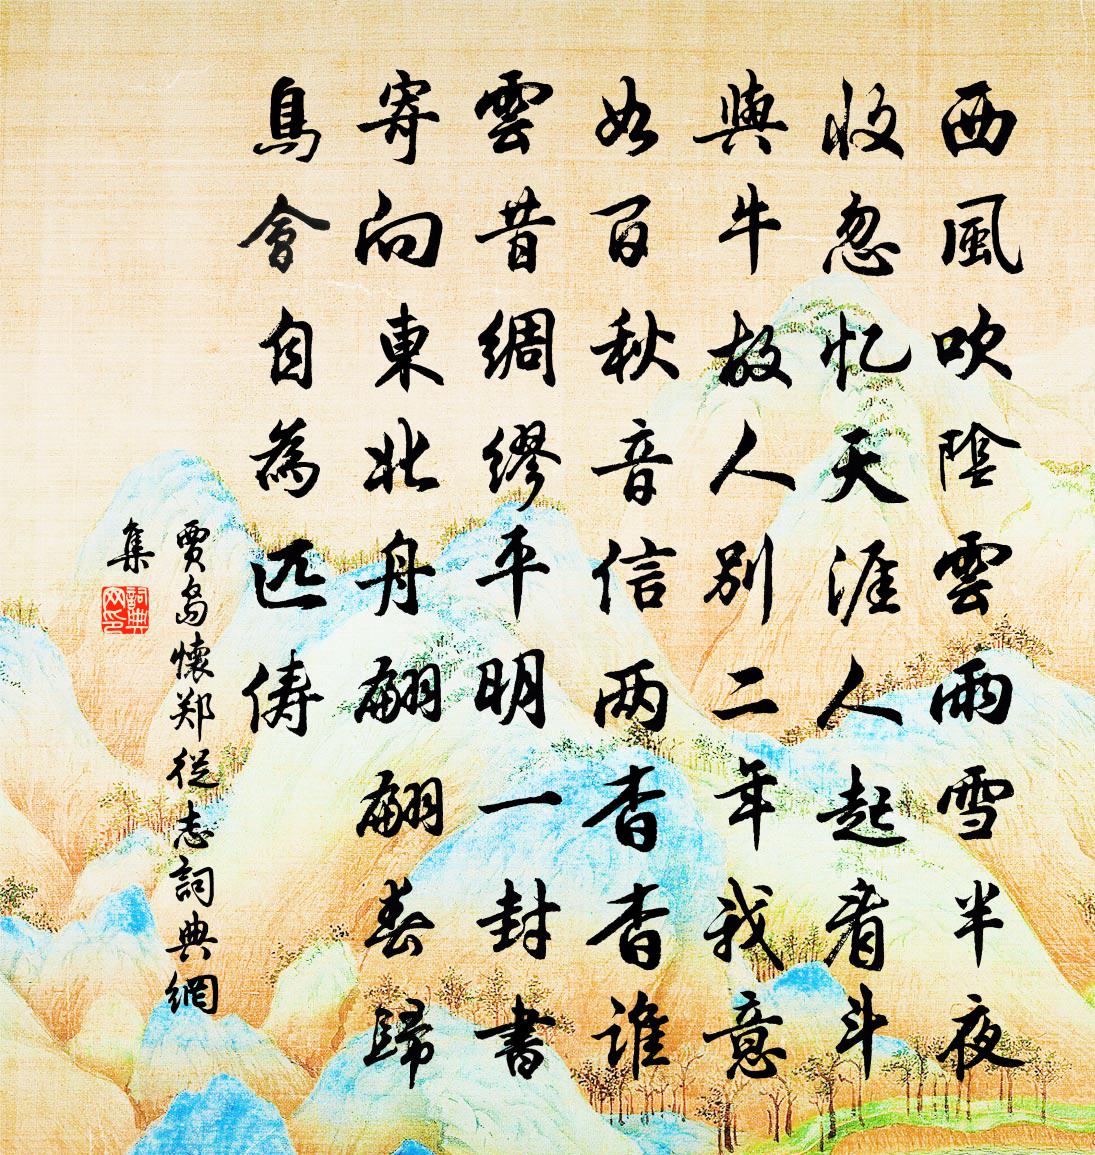 西風吹陰雲雨雪半夜
收忽忆天涯人起看斗
與牛故人別二年我意
如百秋音信两杳杳誰
雲昔綢繆平明一封書
寄向東北舟翩翩春歸
鳥會自為匹儔
賈島懷郑從志詞典網
集
詞典网印